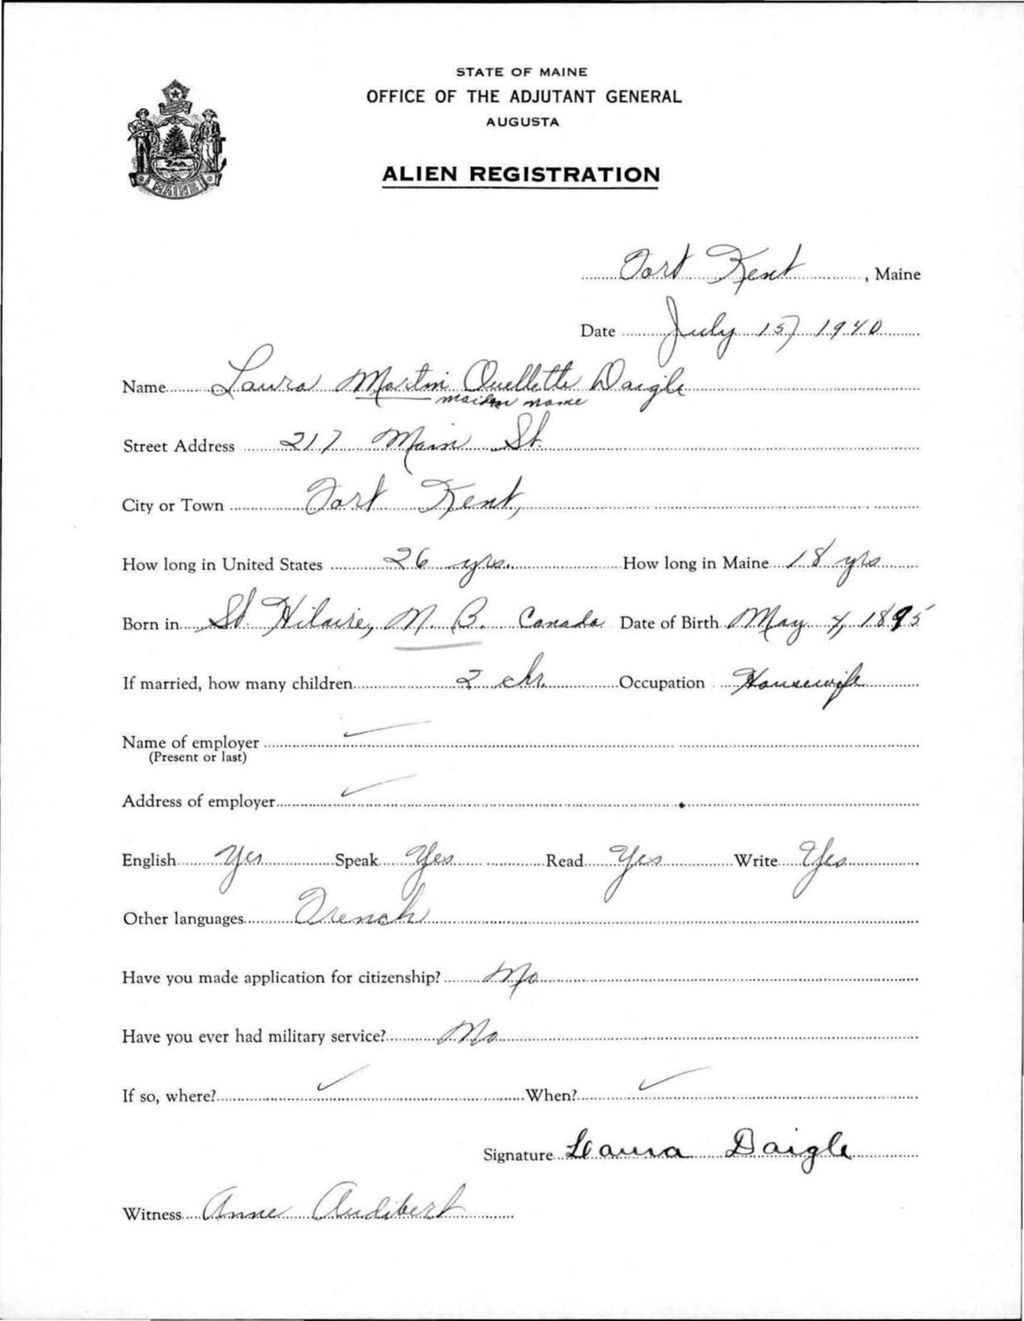 STATE OF MAINE
OFFICE OF THE ADJUTANT GENERAL
AUGUSTA
ALIEN REGISTRATION
MAINE
Fort Kent, Maine
Date July 15, 1940
Name Laura Martin Ouellette Daigle
maiden name
Street Address 217 Main St.
City or Town Fort Kent,
How long in United States 26 yrs. How long in Maine 18 yrs
Born in St. Hilaire, N. B. Canada Date of Birth May 4, 1895
If married, how many children 2 chr. Occupation Housewife
Name of employer
(Present or last)
Address of employer
English Yes Speak Yes Read Yes Write Yes
Other languages French
Have you made application for citizenship? No
Have you ever had military service? No
If so, where? When?
Signature Laura Daigle
Witness Anne Audibert